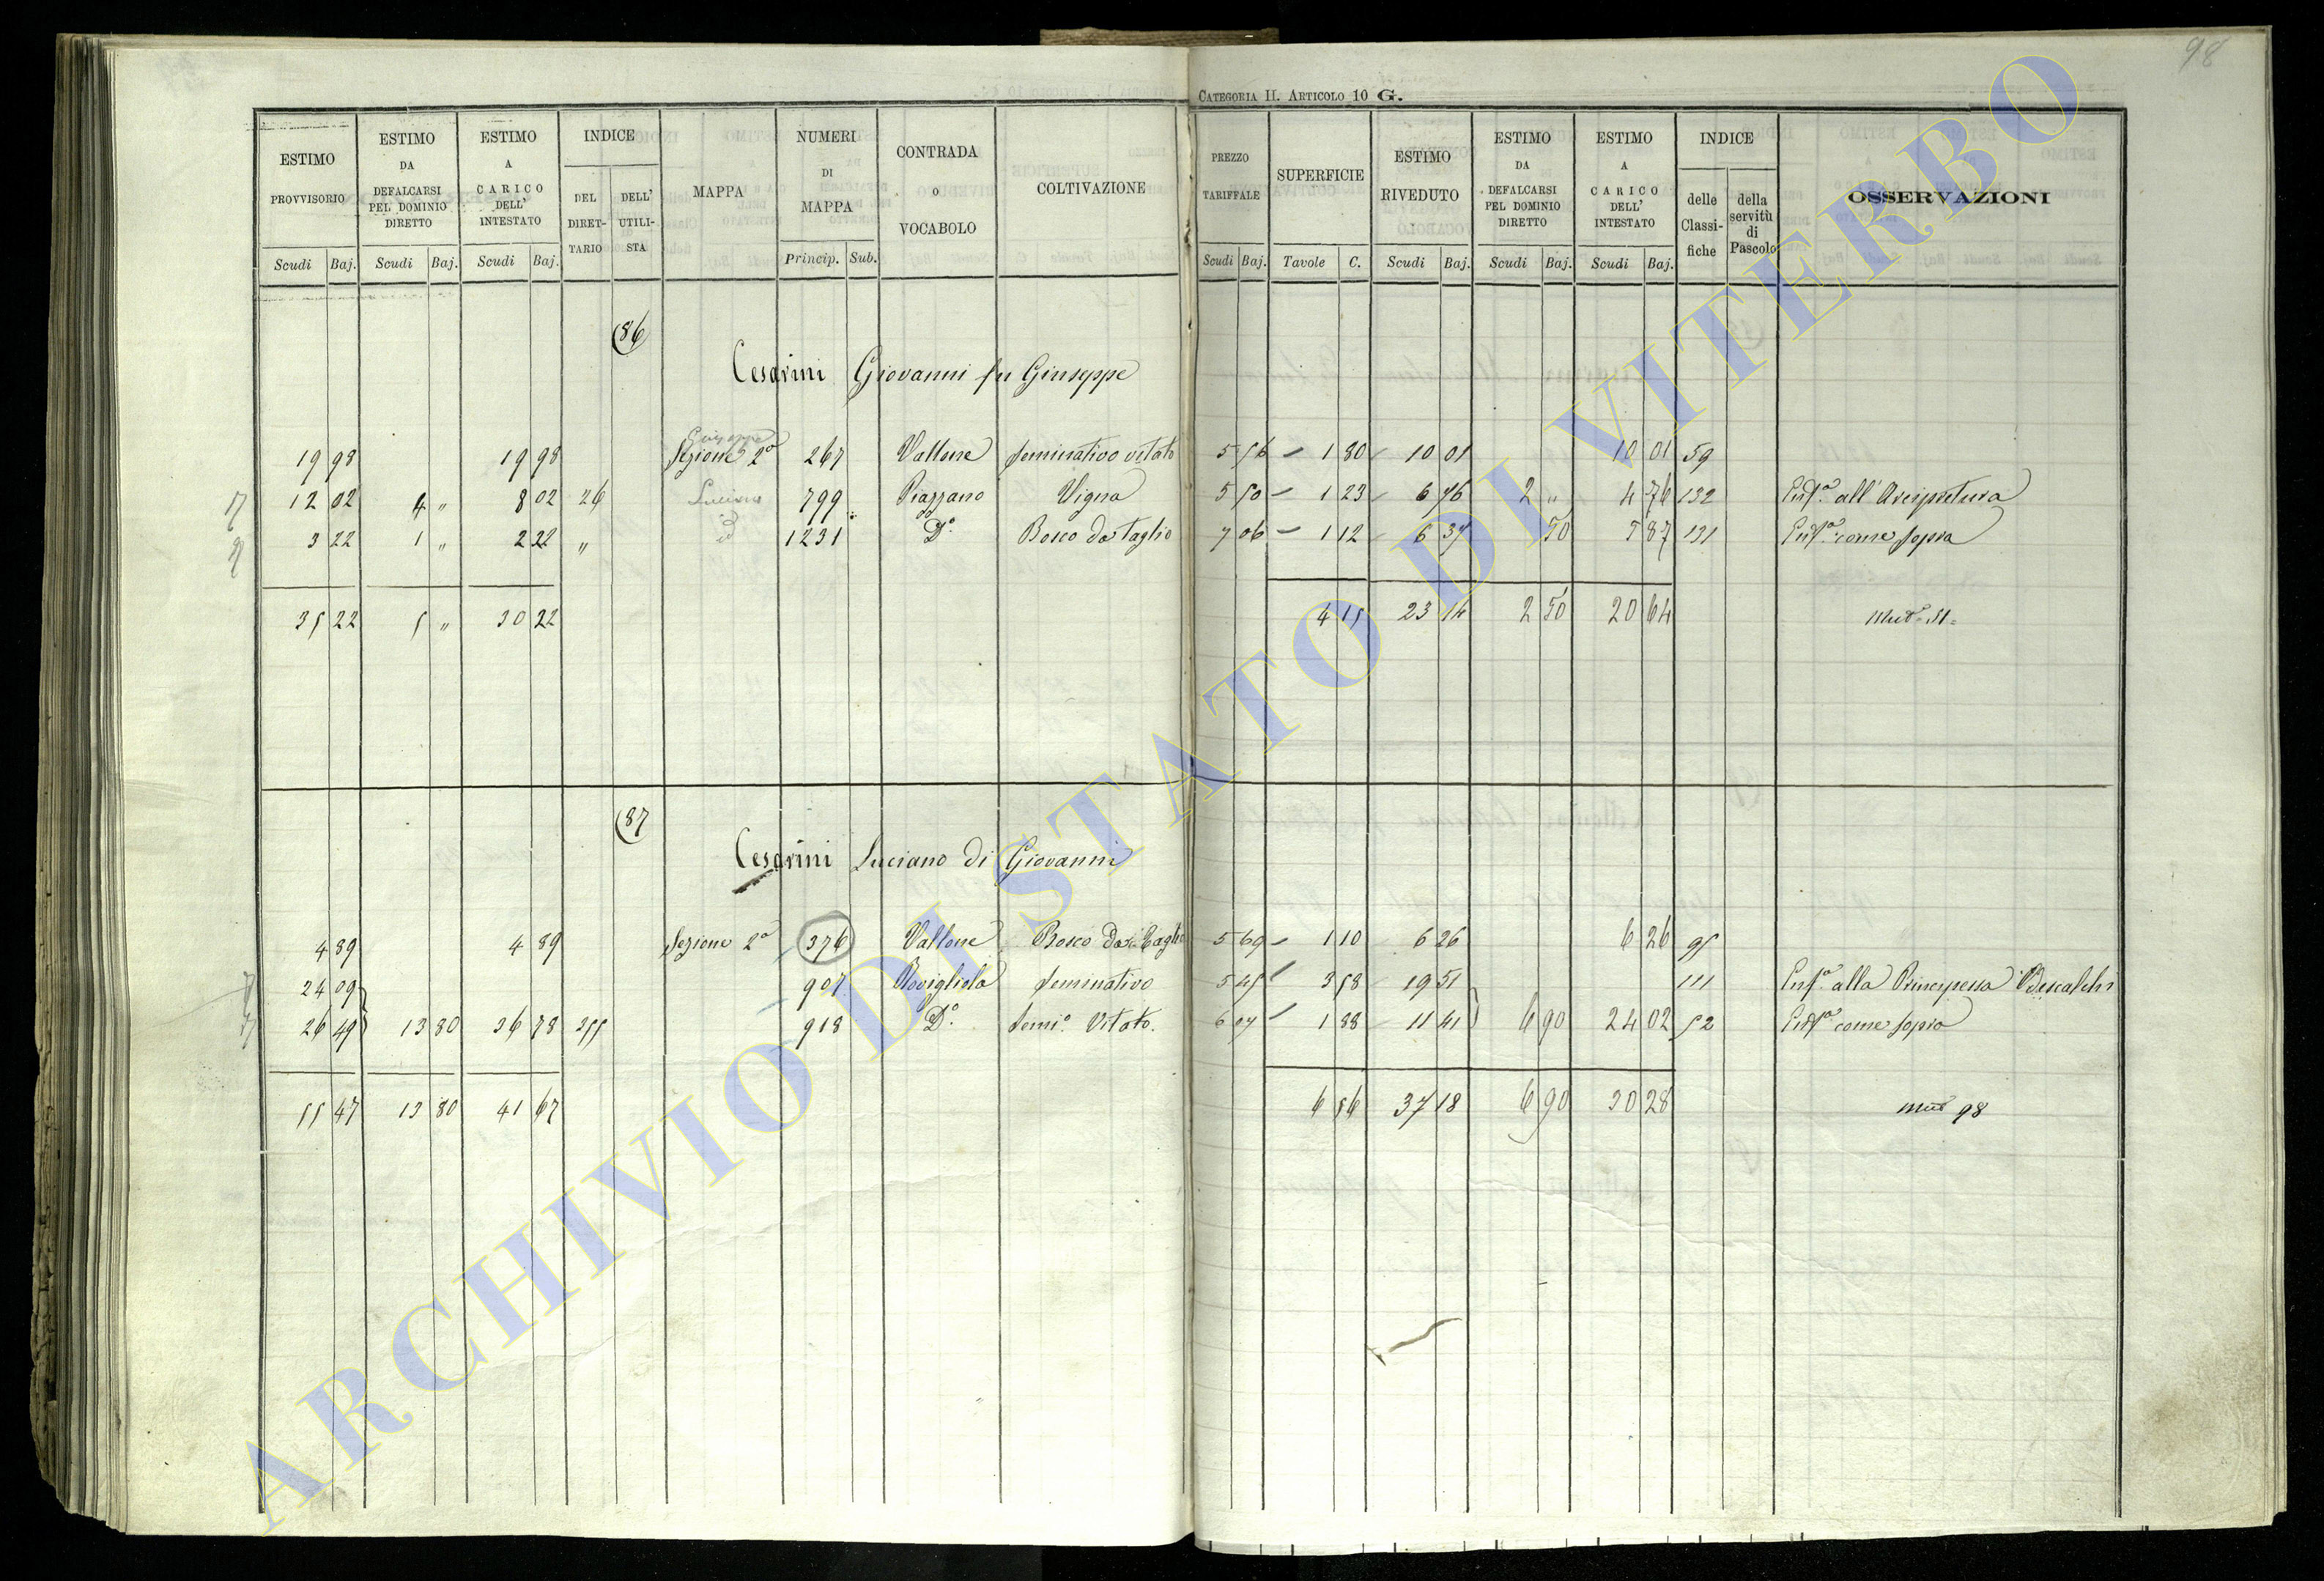 98
CATEGORIA II. ARTICOLO 10 G.
ESTIMO PROVVISORIO
ESTIMO DA DEFALCARSI PEL DOMINIO DIRETTO
ESTIMO A CARICO DELL' INTESTATO
INDICE
DEL DIRETTARIO
DELL' UTILISTA
MAPPA
NUMERI DI MAPPA
CONTRADA O VOCABOLO
COLTIVAZIONE
PREZZO TARIFFALE
SUPERFICIE
ESTIMO RIVEDUTO
ESTIMO DA DEFALCARSI PEL DOMINIO DIRETTO
ESTIMO A CARICO DELL' INTESTATO
INDICE
delle Classifiche
della servitù di Pascolo
OSSERVAZIONI
Scudi Baj. Scudi Baj. Scudi Baj. Princip. Sub. Scudi Baj. Tavole C. Scudi Baj. Scudi Baj. Scudi Baj.
86
Cesarini Giovanni fu Giuseppe
Giuseppe
19 98 19 98 Sezione 2a 267 Vallone seminativo vitato 5 56 1 80 10 01 10 01 59
12 02 4 " 8 02 26 Luciano 799 Piazzano Vigna 5 50 1 23 6 76 2 " 4 76 132 Enfa. all' Arcipretura
3 22 1 " 2 22 " id 1231 Do. Bosco da taglio 1 12 6 37 50 5 87 131 Enfa. come sopra
35 22 5 " 30 22 4 15 23 14 2 50 20 64
87
Cesarini Luciano di Giovanni
4 89 4 89 Sezione 2a 376 Vallone Bosco da Taglio 5 69 1 10 6 26 6 26 95
24 09 907 seminativo 5 45 3 58 19 51 111 Enfa. alla Principessa Odescalchi
26 49 13 80 36 78 255 918 Do. Semo. Vitato. 6 07 1 88 11 41 6 90 24 02 52 Enfa. come sopra
55 47 13 80 41 67 6 56 37 18 6 90 30 28 98
ARCHIVIO DI STATO DI VITERBO